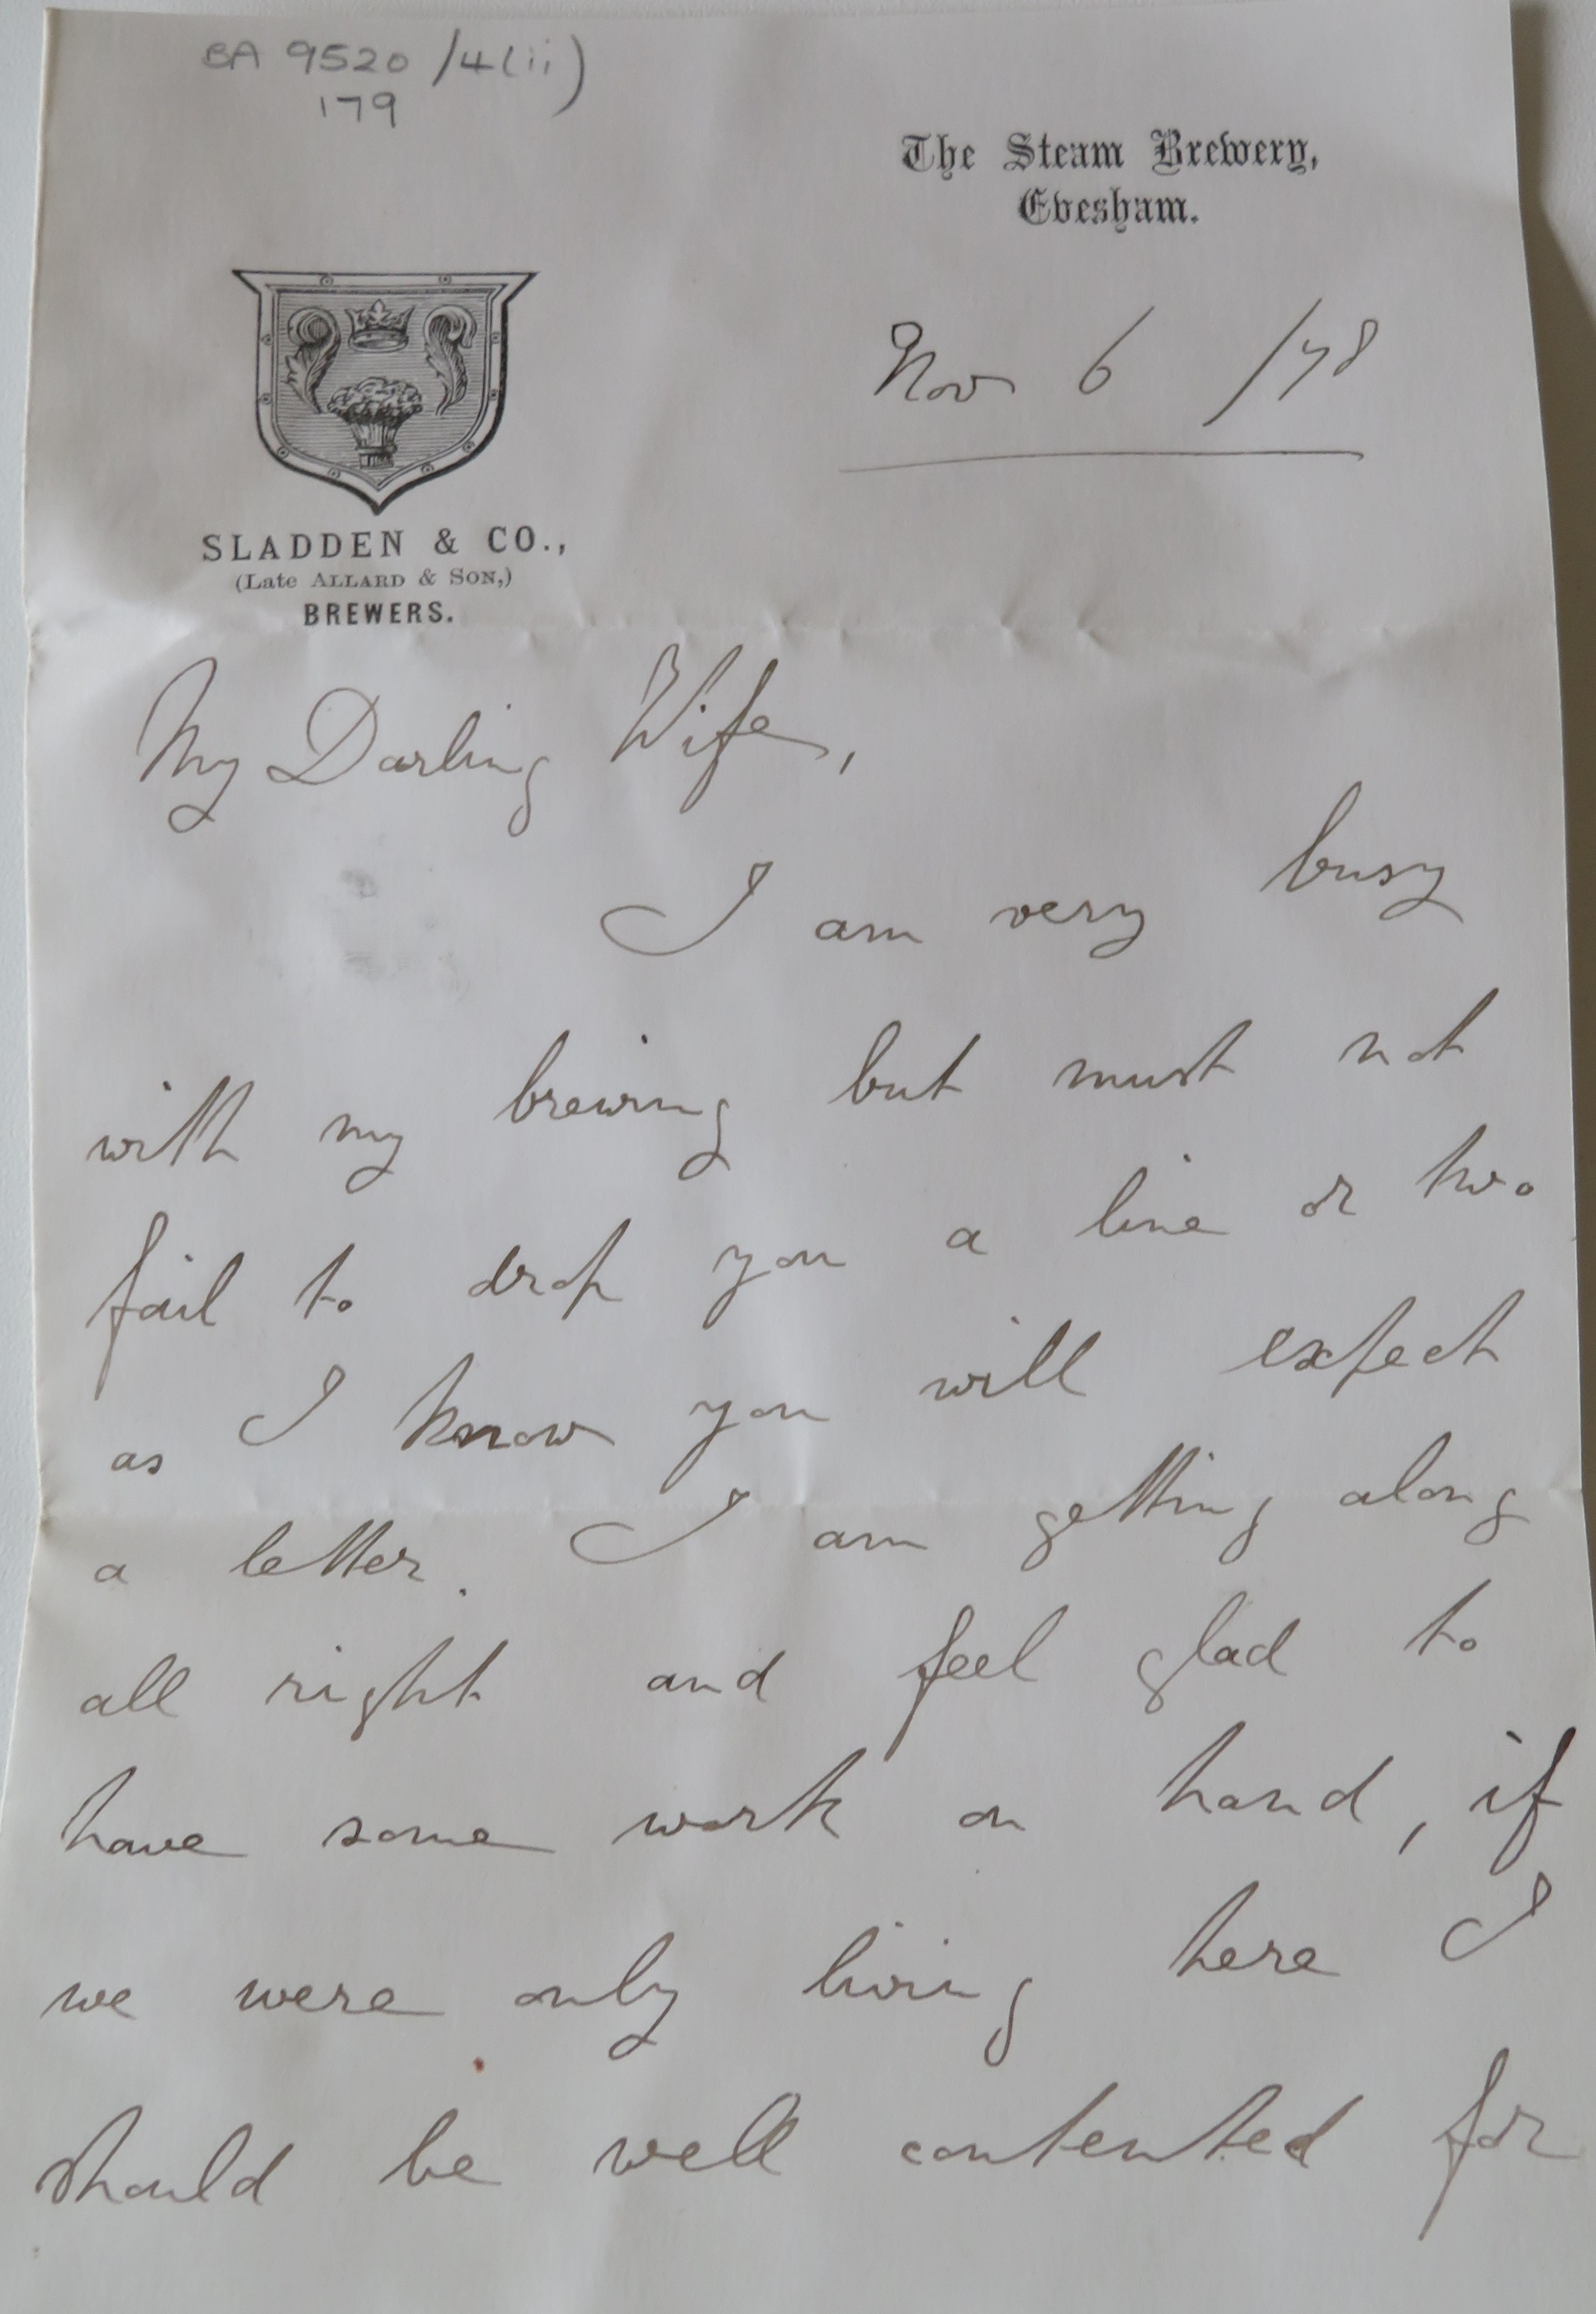 BA 9520/4(ii)
179
The Steam Brewery,
Evesham.
Nov 6 /78
SLADDEN & CO.,
(Late ALLARD & SON,)
BREWERS.
My Darling Wife,
I am very busy
with my brewing but must not
fail to drop you a line or two
as I know you will expect
a letter. I am getting along
all right and feel glad to
have some work on hand, if
we were only living here I
should be well contented for